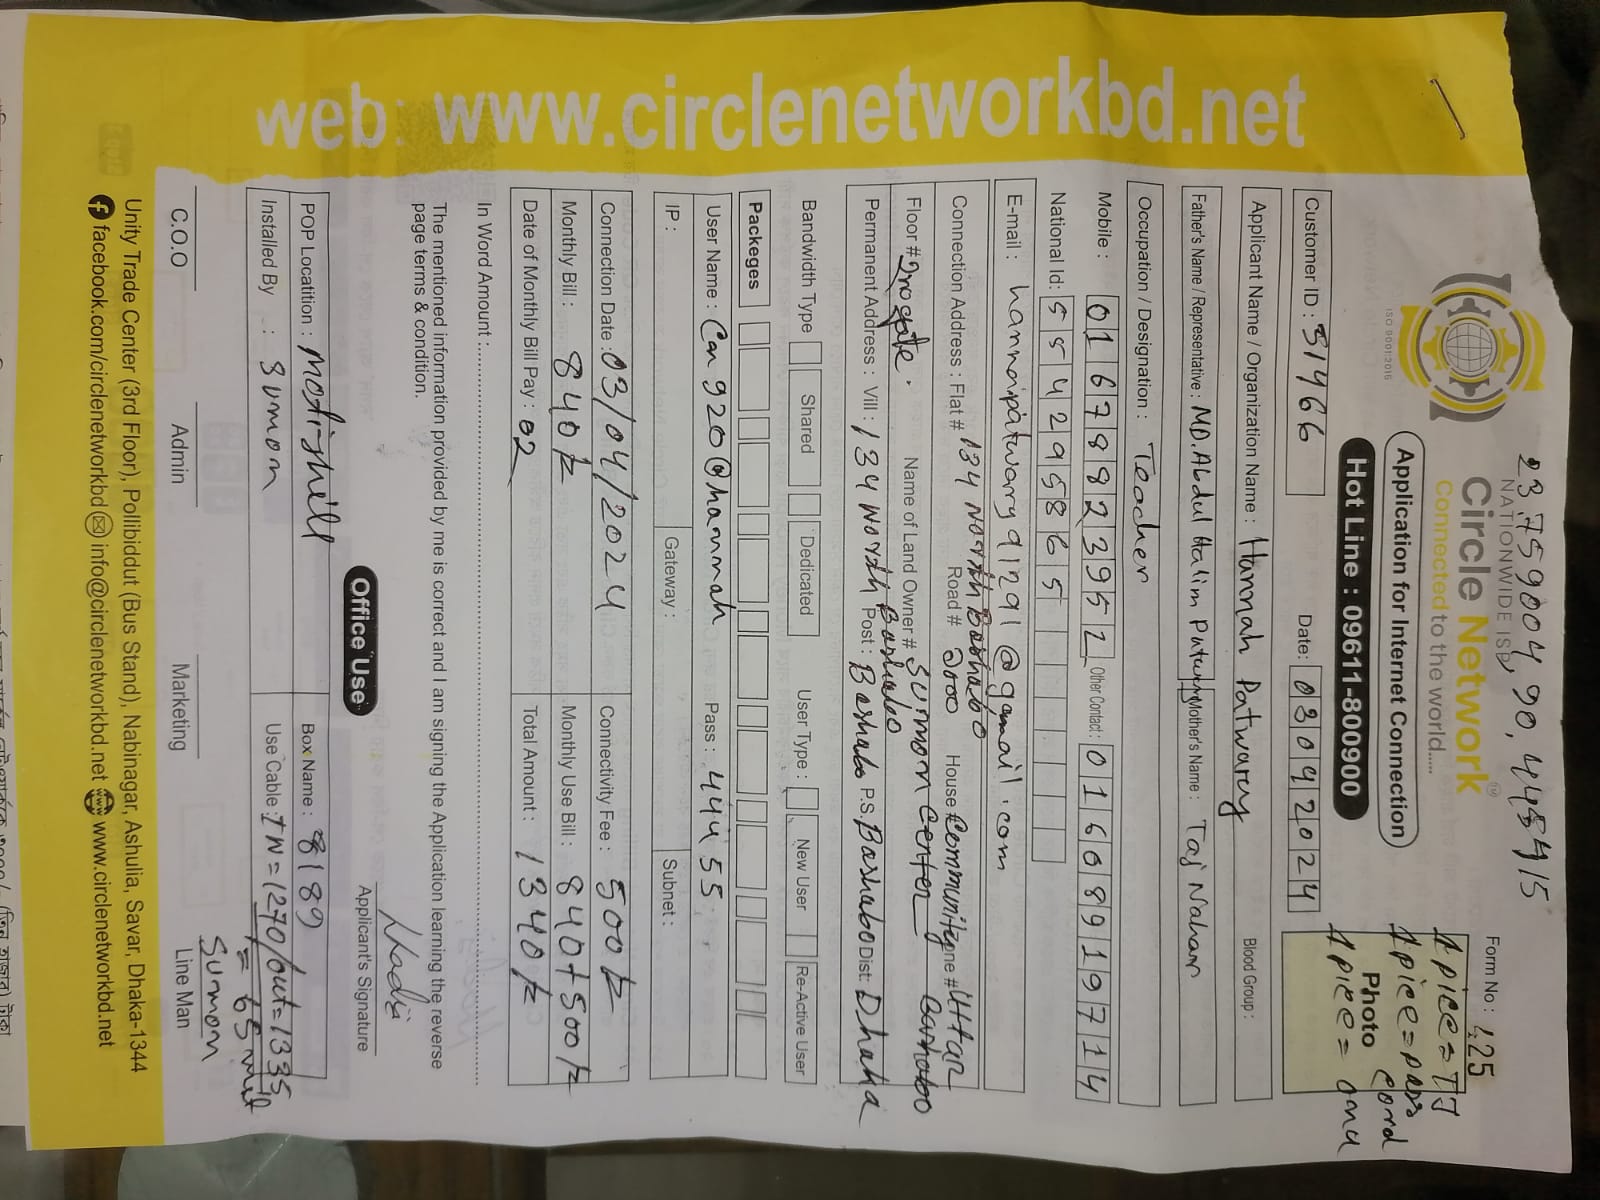 23.759004, 90.4454415
Circle Network
NATIONWIDE ISP
Connected to the world.....
ISO 9001:2015
Form No : 125
Application for Internet Connection
Hot Line : 09611-800900
1 pice = TJ
1 pice = pass cord
Photo
1 pice = onu
Customer ID : 31466 Date: 03 09 2024
Applicant Name / Organization Name : Hannah Patwarey Blood Group :
Father's Name / Representative : MD. Abdul Halim Mother's Name : Taj Nahar
Occupation / Designation : Teacher
Mobile : 01678823952 Other Contact : 01608919714
National Id: 554295865
E-mail : hannaipatwarry9129l@gamail.com
Connection Address : Flat # 134 North Bashabo Road # House # Community Zone # Uttar
Floor # Name of Land Owner # Sumon Center Bashaboo
Permanent Address : Vill : 134 North Bashabo Post : Bashabo P.S. Bashabo Dist : Dhaka
Bandwidth Type Shared Dedicated User Type : New User Re-Active User
Packeges
User Name : Cn 920@hannah Pass : 44455
IP : Gateway : Subnet :
Connection Date : 03/04/2024 Connectivity Fee : 500/=
Monthly Bill : 840/= Monthly Use Bill : 840+500/=
Date of Monthly Bill Pay : 02 Total Amount : 1340/=
In Word Amount :
The mentioned information provided by me is correct and I am signing the Application learning the reverse
page terms & condition.
Applicant's Signature
Office Use
POP Locatition : Motijhill Box Name : 8189
Installed By : Sumon Use Cable : IN = 1270/out = 1335
= 65 mit
Sumon
C.O.O Admin Marketing Line Man
Unity Trade Center (3rd Floor), Pollibiddut (Bus Stand), Nabinagar, Ashulia, Savar, Dhaka-1344
facebook.com/circlenetworkbd info@circlenetworkbd.net www.circlenetworkbd.net
web: www.circlenetworkbd.net